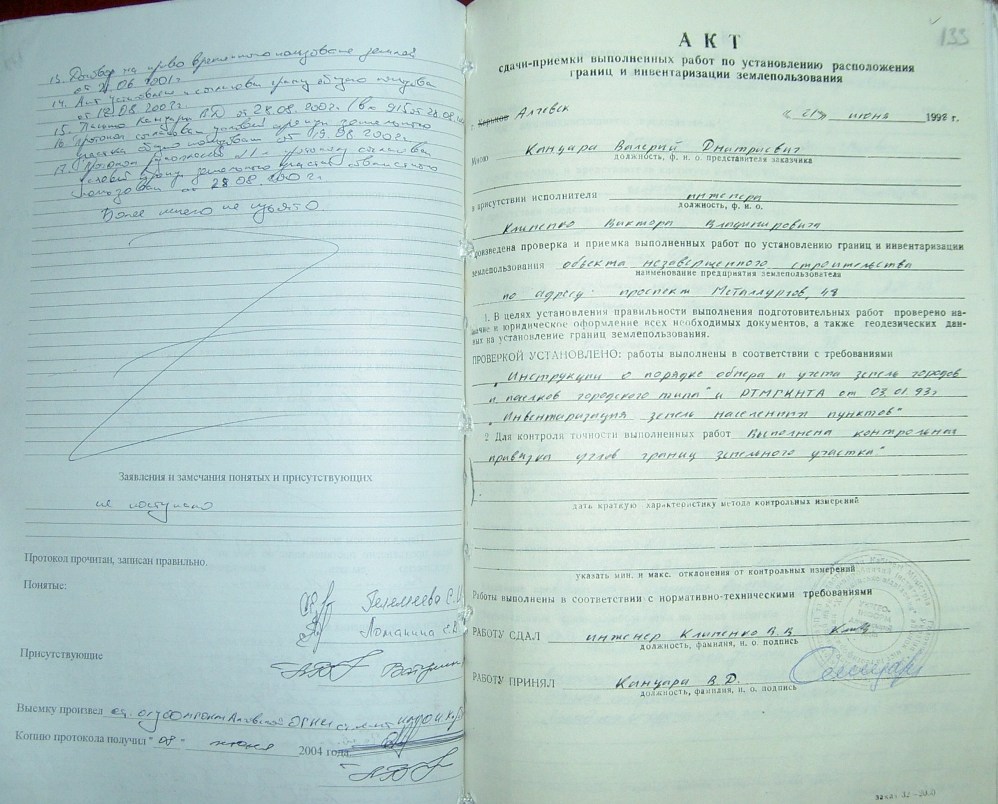 13. Договор на право временного пользования землей
от 21.06.2001г.
14. Акт установления и согласования границ общего пользова
от 18.08 2002г.
15. Письмо Канцара В.Д от 28.08.2002г (вх 915 от 28.08.
16. Протокол согласован условий аренды земельного
участка общего пользован от 19.08 2002г.
17. Протокол разногласий №1 к протоколу согласован
условий аренды земельного участка
пользован от 28 08. 2002г.
Более ничего не изъято
Заявления и замечания понятых и присутствующих
не поступило
Протокол прочитан, записан правильно.
Понятые:
Ломакина С.В.
Присутствующие
Выемку произвел
Копию протокола получил " 08 - июня 2004 года
133
АКТ
сдачи-приемки выполненных работ по установлению расположения
границ и инвентаризации землепользования
г. Харьков Алчевск
« 21 » июня 1998 г.
Мною Канцара Валерий Дмитриевич
должность, ф. и. о. представителя заказчика
в присутствии исполнителя инженера
должность, ф. и. о.
Клипенко Виктора Владимировича
произведена проверка и приемка выполненных работ по установлению границ и инвентаризации
землепользования объекта незавершенного строительства
наименование предприятия землепользователя
по адресу: проспект Металлургов, 48
1. В целях установления правильности выполнения подготовительных работ проверено на-
личие и юридическое оформление всех необходимых документов, а также геодезических дан-
ных на установление границ землепользования.
ПРОВЕРКОЙ УСТАНОВЛЕНО: работы выполнены в соответствии с требованиями
"Инструкции о порядке обмера и учета земель городов
и поселков городского типа" и РТМГКНТА от 03.01.93г
"Инвентаризация земель населенных пунктов"
2 Для контроля точности выполненных работ Выполнена контрольная
привязка углов границ земельного участка"
дать краткую характеристику метода контрольных измерений
указать мин. и макс. отклонения от контрольных измерений
Работы выполнены в соответствии с нормативно-техническими требованиями
РАБОТУ СДАЛ инженер Клипенко В.В
должность, фамилия, и. о. подпись
РАБОТУ ПРИНЯЛ Канцара В.Д.
должность, фамилия, и. о. подпись